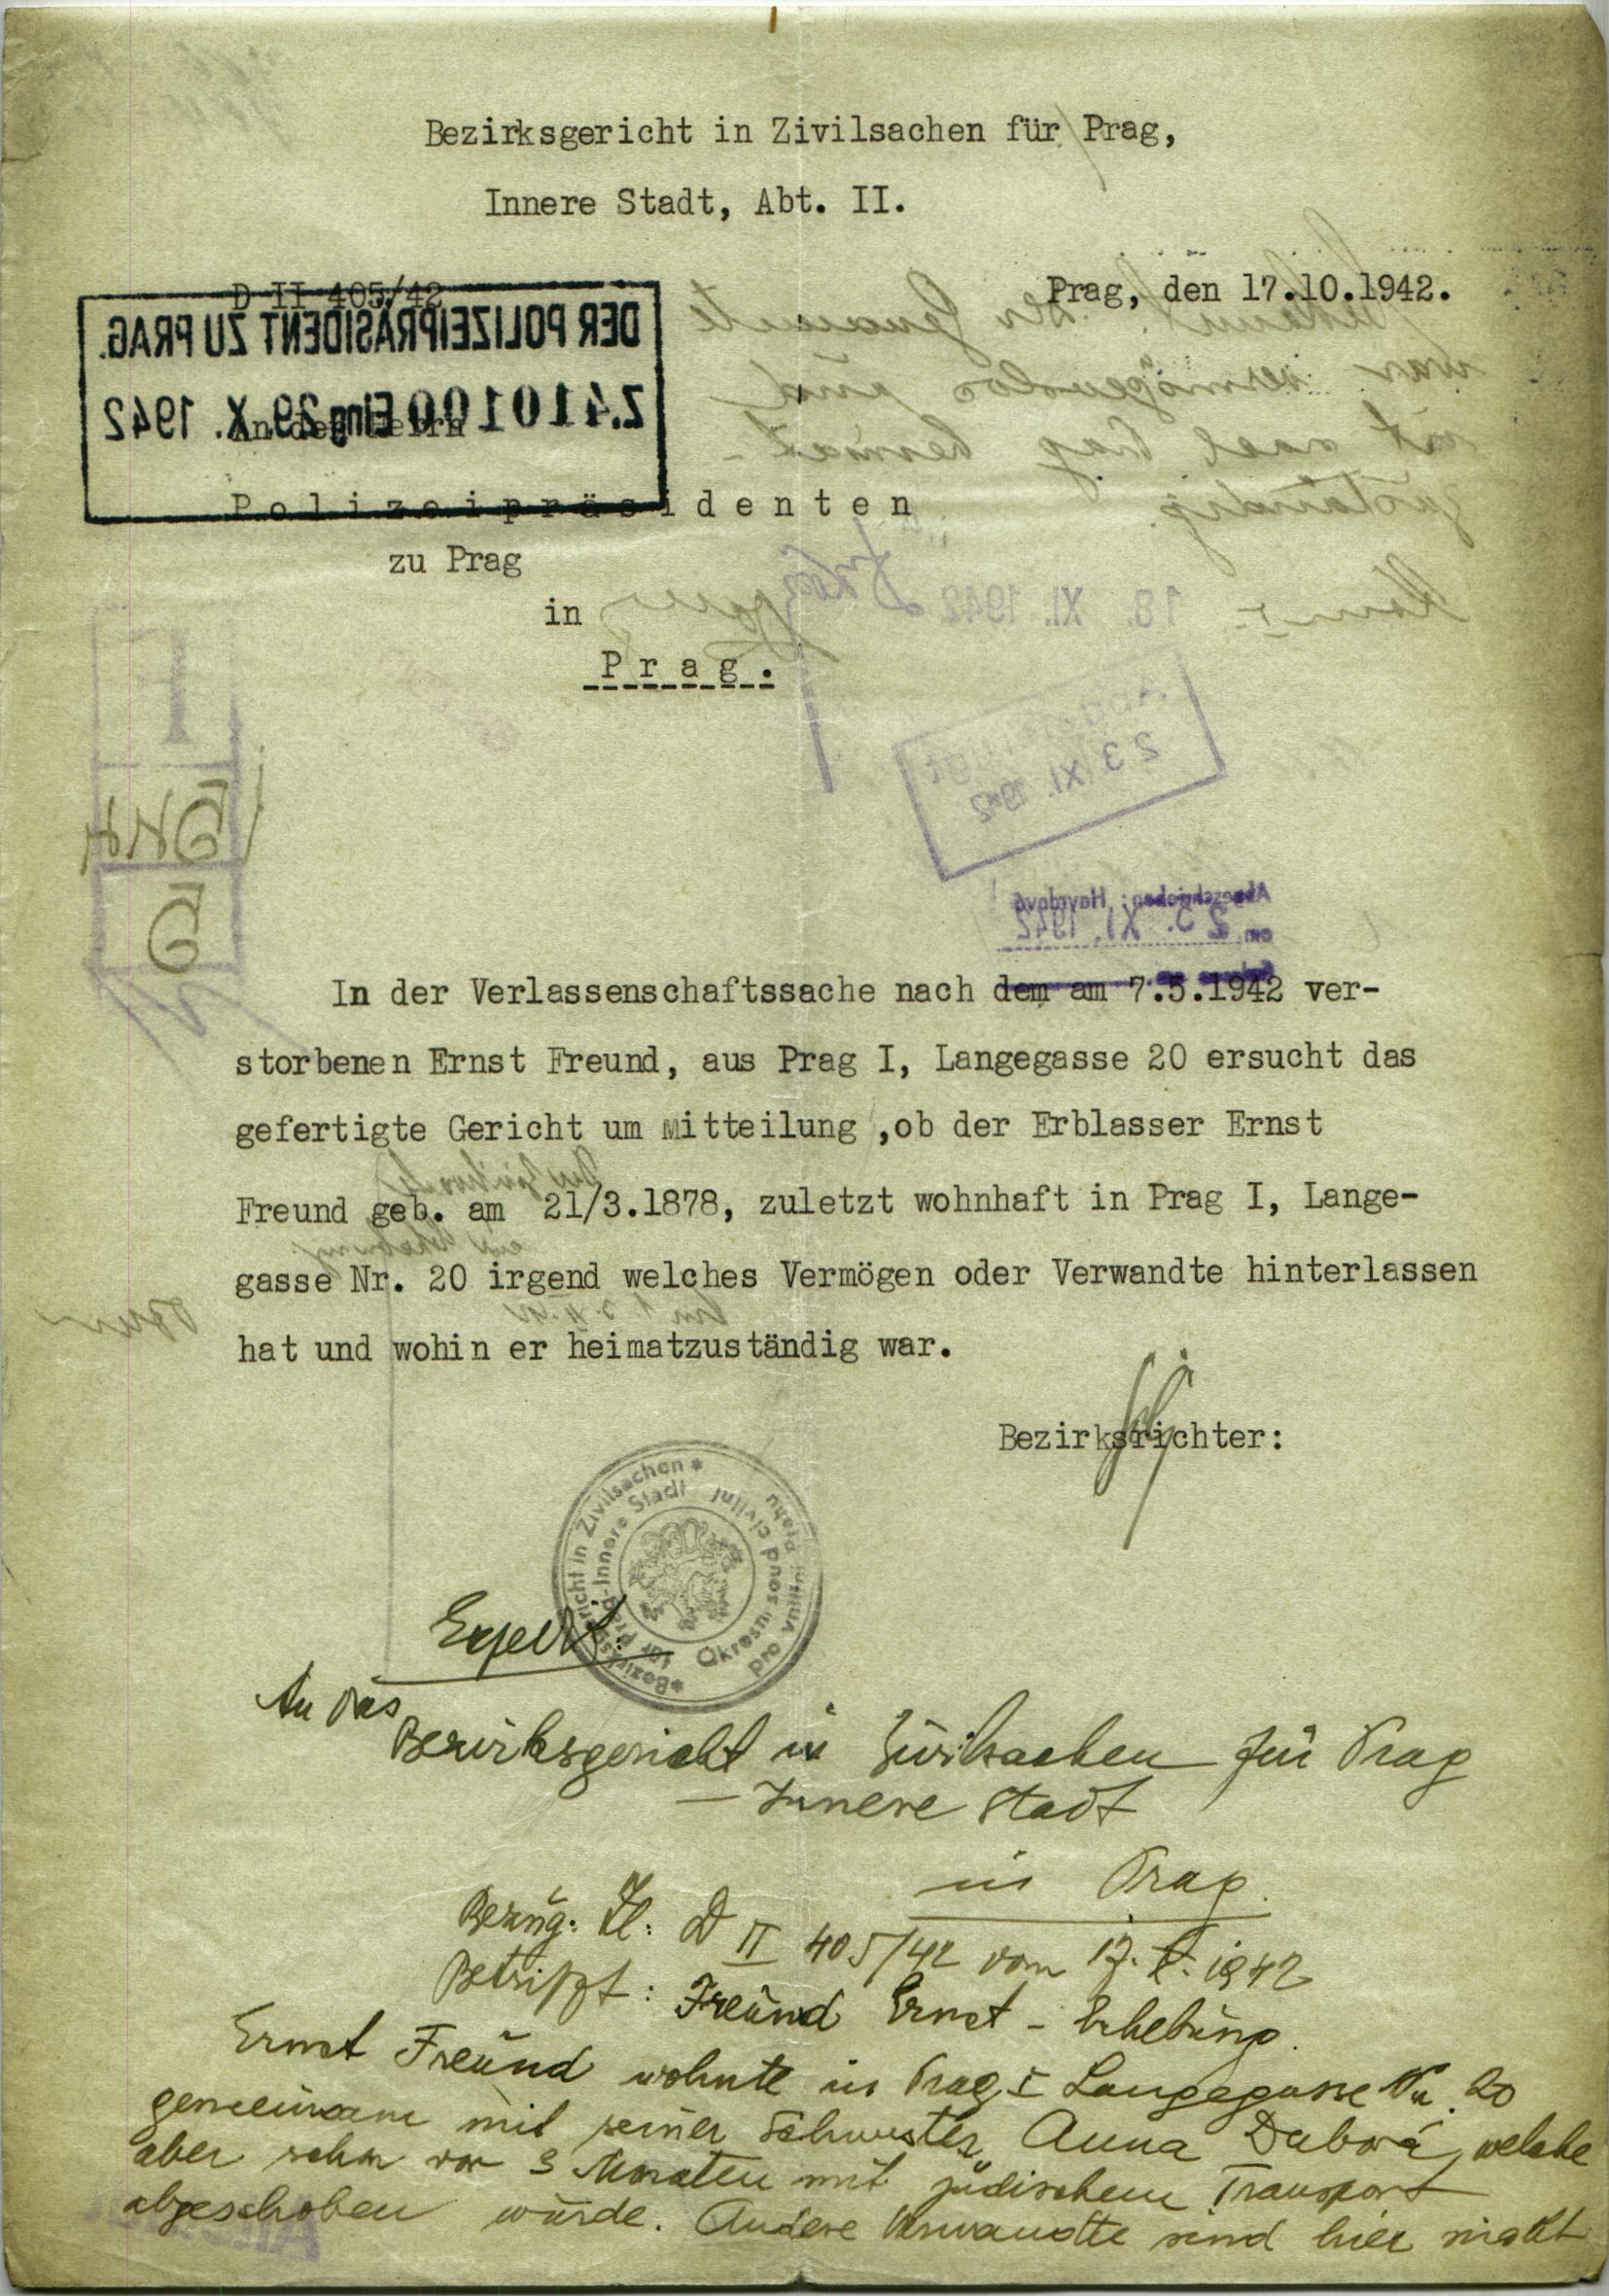 Bezirksgericht in Zivilsachen für Prag,
Innere Stadt, Abt. II.
D II 405/42
Prag, den 17.10.1942.
DER POLIZEIPRÄSIDENT ZU PRAG.
Z.410100 Eing 29. X. 1942
An den Herrn
Polizeipräsidenten
zu Prag
in
Prag.
18. XI. 1942
23 XI. 1942
Abgeschrieben: Havrdová
am 25. XI. 1942
In der Verlassenschaftssache nach dem am 7.5.1942 ver-
storbenen Ernst Freund, aus Prag I, Langegasse 20 ersucht das
gefertigte Gericht um Mitteilung ,ob der Erblasser Ernst
Freund geb. am 21/3.1878, zuletzt wohnhaft in Prag I, Lange-
gasse Nr. 20 irgend welches Vermögen oder Verwandte hinterlassen
hat und wohin er heimatzuständig war.
Bezirksrichter:
*Bezirksgericht in Zivilsachen*
für Prag-Innere Stadt
Okresní soud civilní
pro vnitřní Prahu
An das
Bezirksgericht in Zivilsachen für Prag
- Innere Stadt
in Prag.
Bezug: Zl: D II 405/42 vom 17.X.1942
Betrifft: Freund Ernst - Erhebung.
Ernst Freund wohnte in Prag I Langegasse Nr. 20
gemeinsam mit seiner Schwester Anna Dubová, welche
aber schon vor 3 Monaten mit jüdischem Transport
abgeschoben wurde. Andere Verwandte sind hier nicht